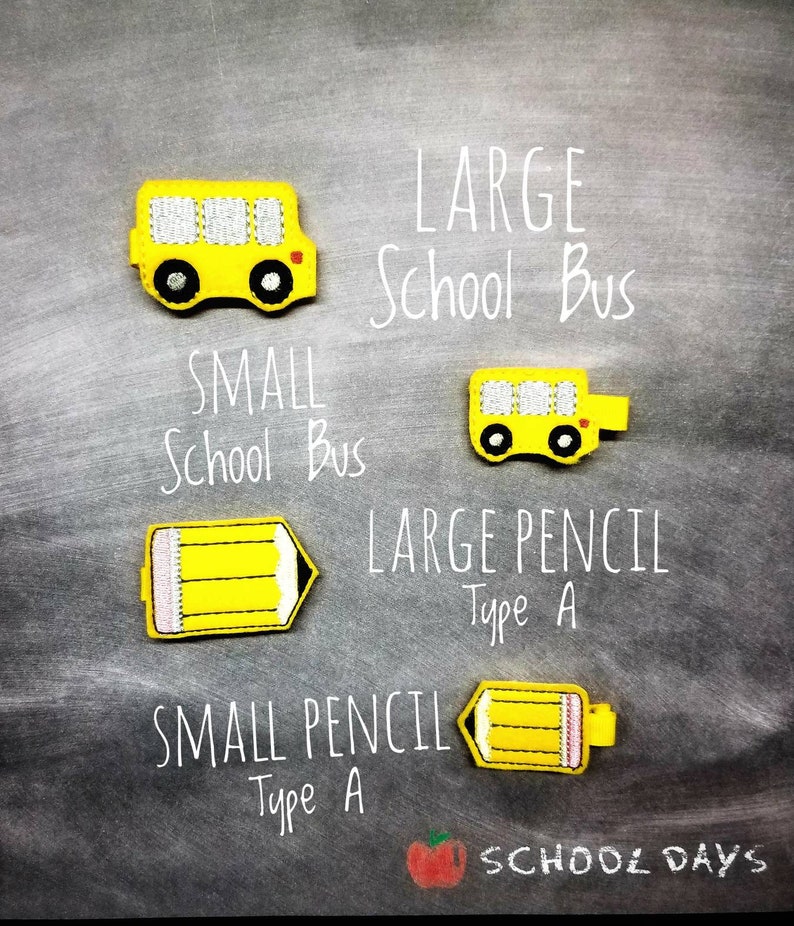 LARGE
School Bus
SMALL
School Bus
LARGE PENCIL
Type A
SMALL PENCIL
Type A
SCHOOL DAYS